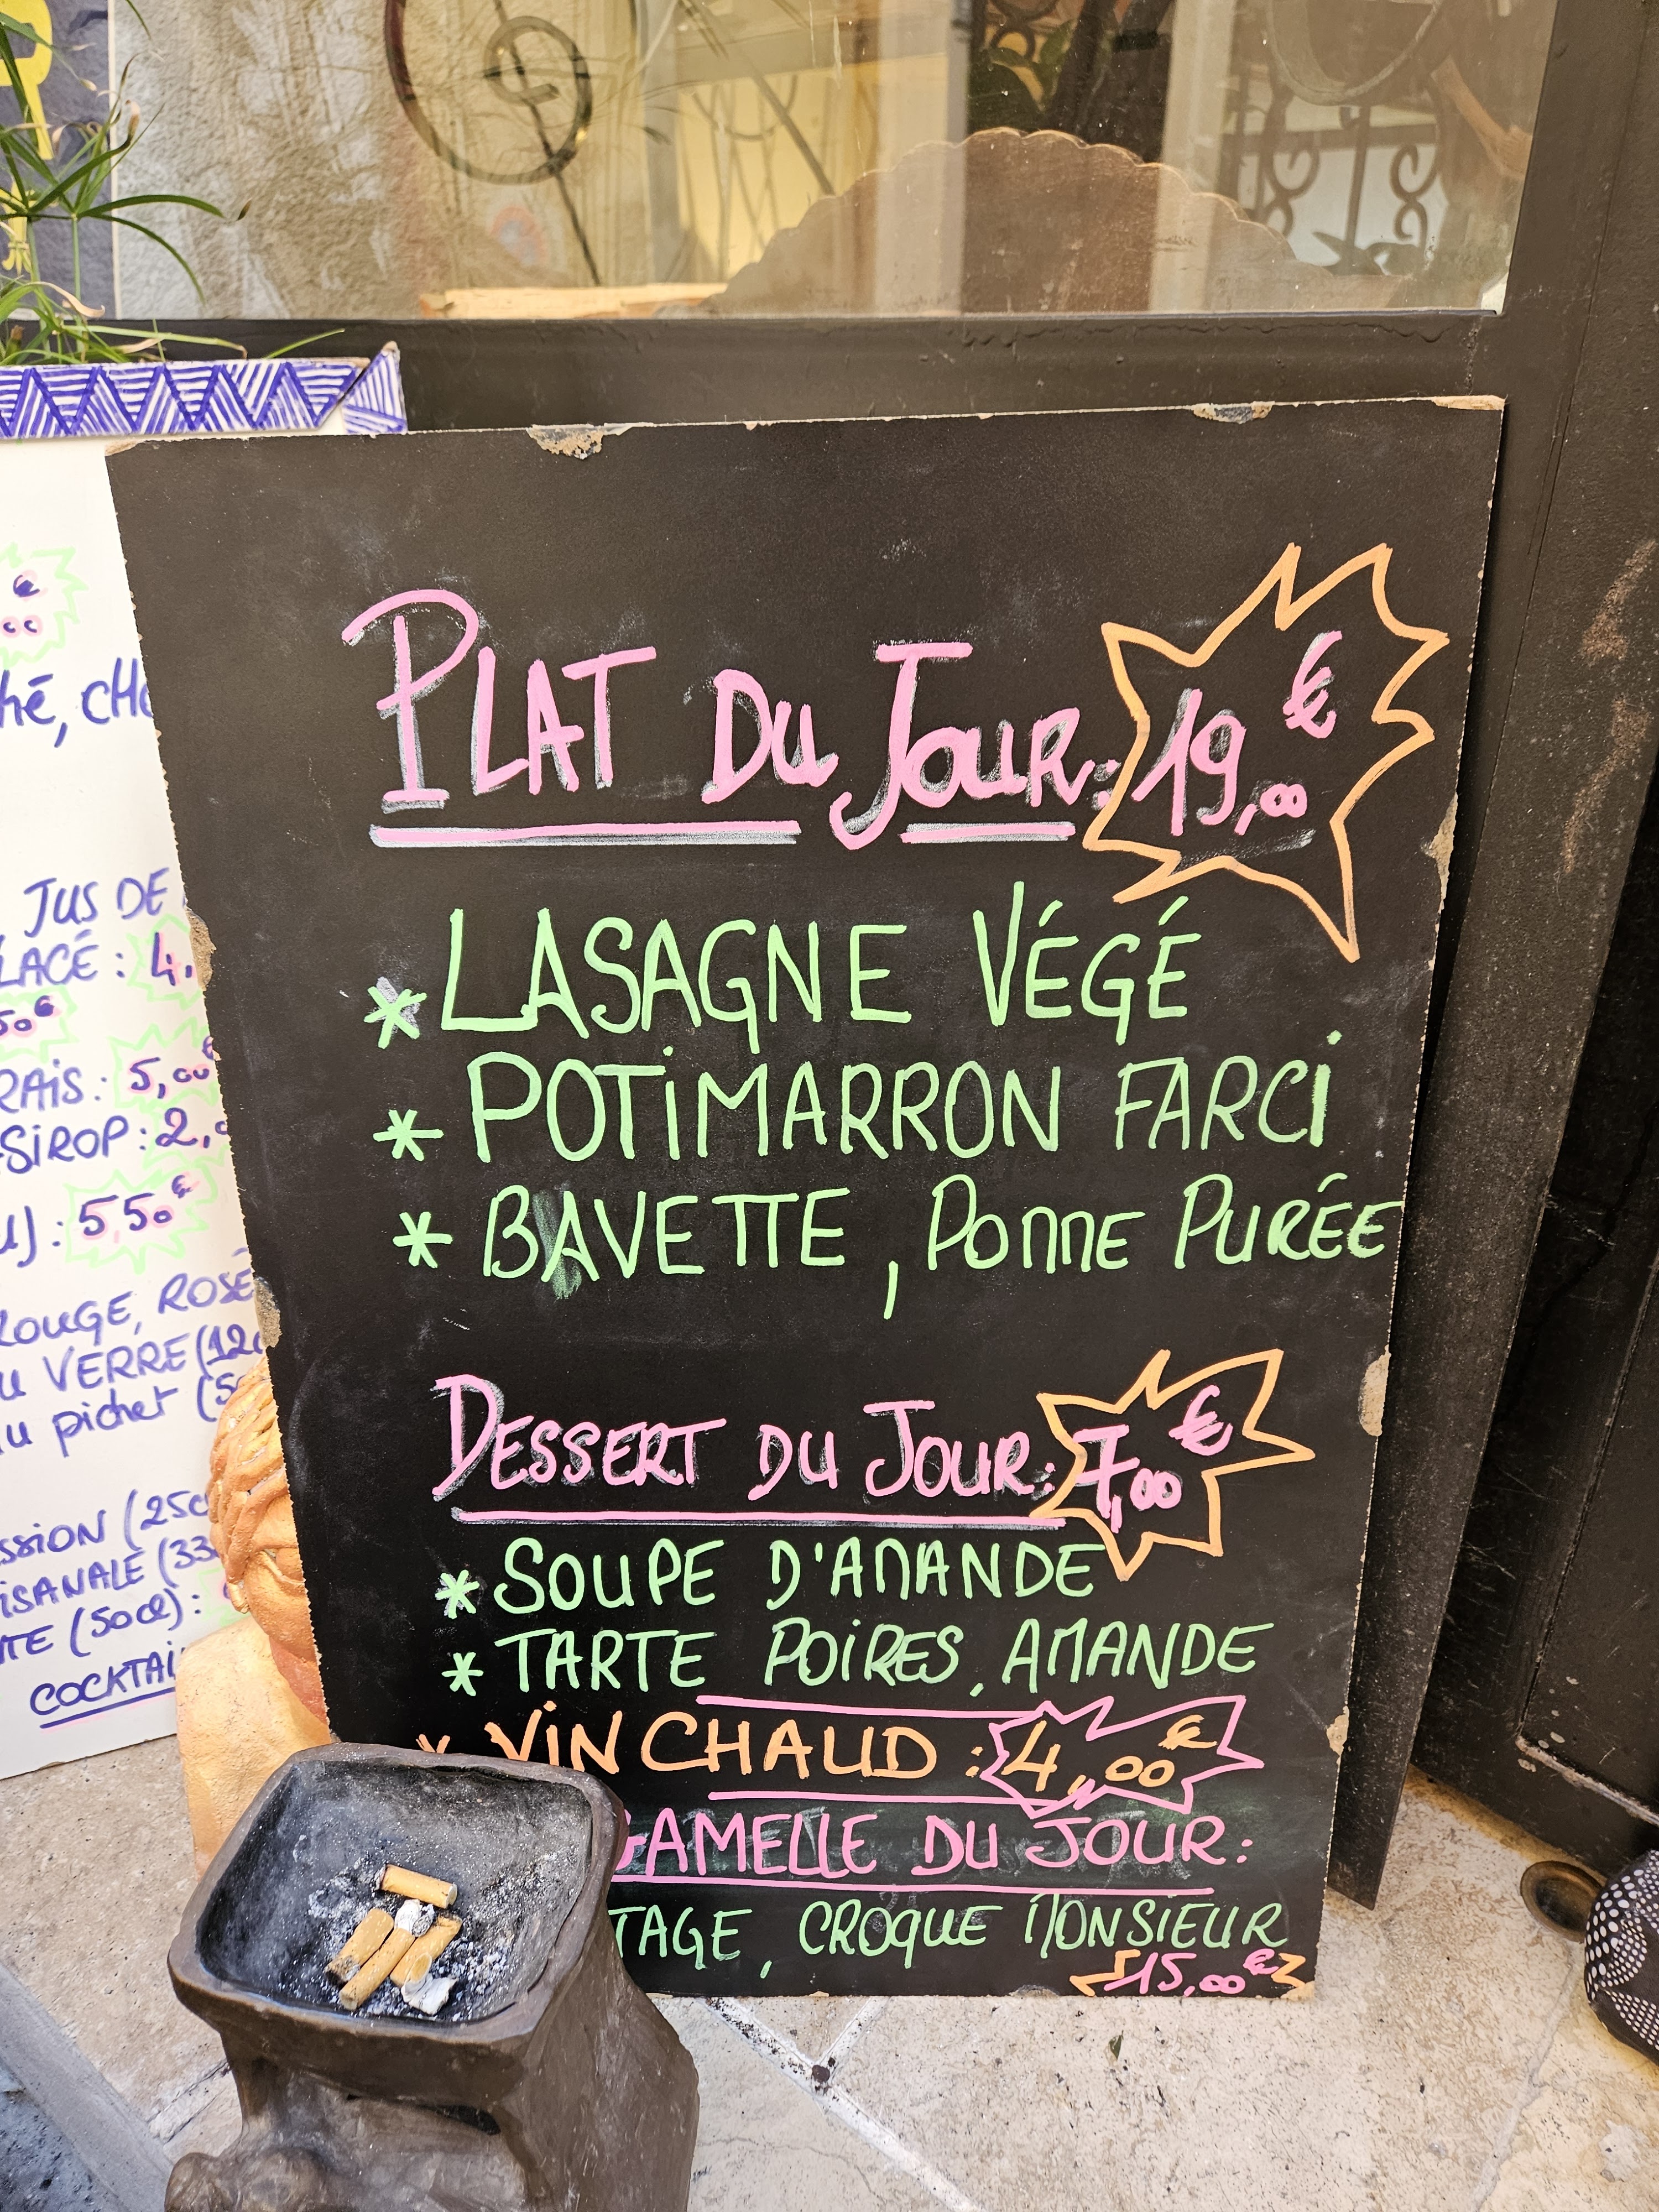 PLAT DU JOUR: 19,00 €
* LASAGNE VÉGÉ
* POTIMARRON FARCI
* BAVETTE, POMME PURÉE
DESSERT DU JOUR: 7,00 €
* SOUPE D'AMANDE
* TARTE POIRES, AMANDE
* VIN CHAUD : 4,00 €
GAMELLE DU JOUR:
TAGE, CROQUE MONSIEUR
15,00 €
JUS DE
LACÉ : 4,
50 €
RAIS : 5,00
SIROP : 2,
: 5,50 €
ROUGE, ROSÉ
VERRE (12c
au pichet (5
SSION (25c
ISANALE (33
TE (50cl) :
COCKTAI